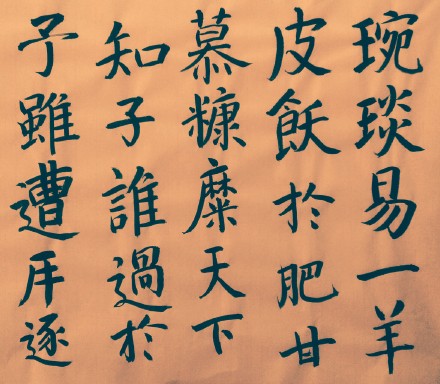 琬琰易一羊
皮飫於肥甘
慕糠糜天下
知子誰過於
予雖遭斥逐